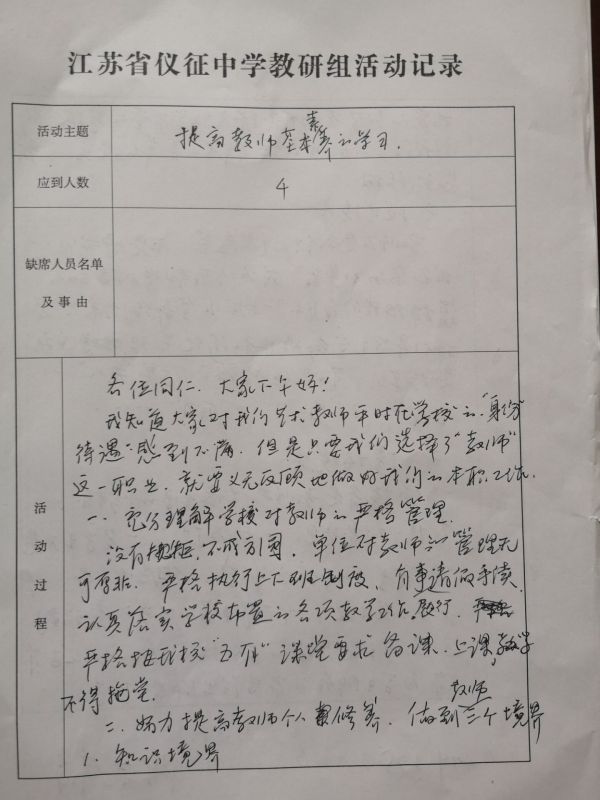 江苏省仪征中学教研组活动记录
活动主题
提高教师基本素养的学习.
应到人数
4
缺席人员名单
及事由
活动过程
各位同仁.大家下午好!
我知道大家对我们艺术教师平时在学校的“身份
待遇”感到不满.但是只要我们选择了“教师”
这一职业.就要义无反顾地做好我们的本职工作.
一.充分理解学校对教师的严格管理.
没有规矩.不成方圆.单位对教师的管理无
可厚非.严格执行上下班制度.有事请假手续.
认真落实学校布置的各项教学工作.履行.
严格按我校“五有”课堂要求备课.上课,教学
不得拖堂.
二.努力提高教师个人修养.做到教师三个境界
1.知识境界